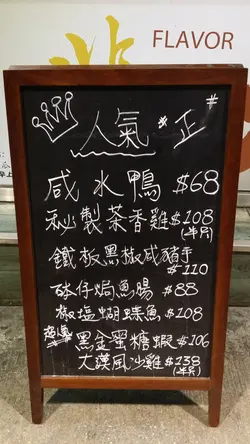 FLAVOR
人氣 *正 #
咸水鴨 $68
秘製茶香雞 $108
(半只)
鐵板黑椒咸豬手
# $110
砵仔焗魚腸 $88
椒塩蝴蝶魚 $108
黑金蜜糖蝦 $106
大漠風沙雞 $138
(半只)